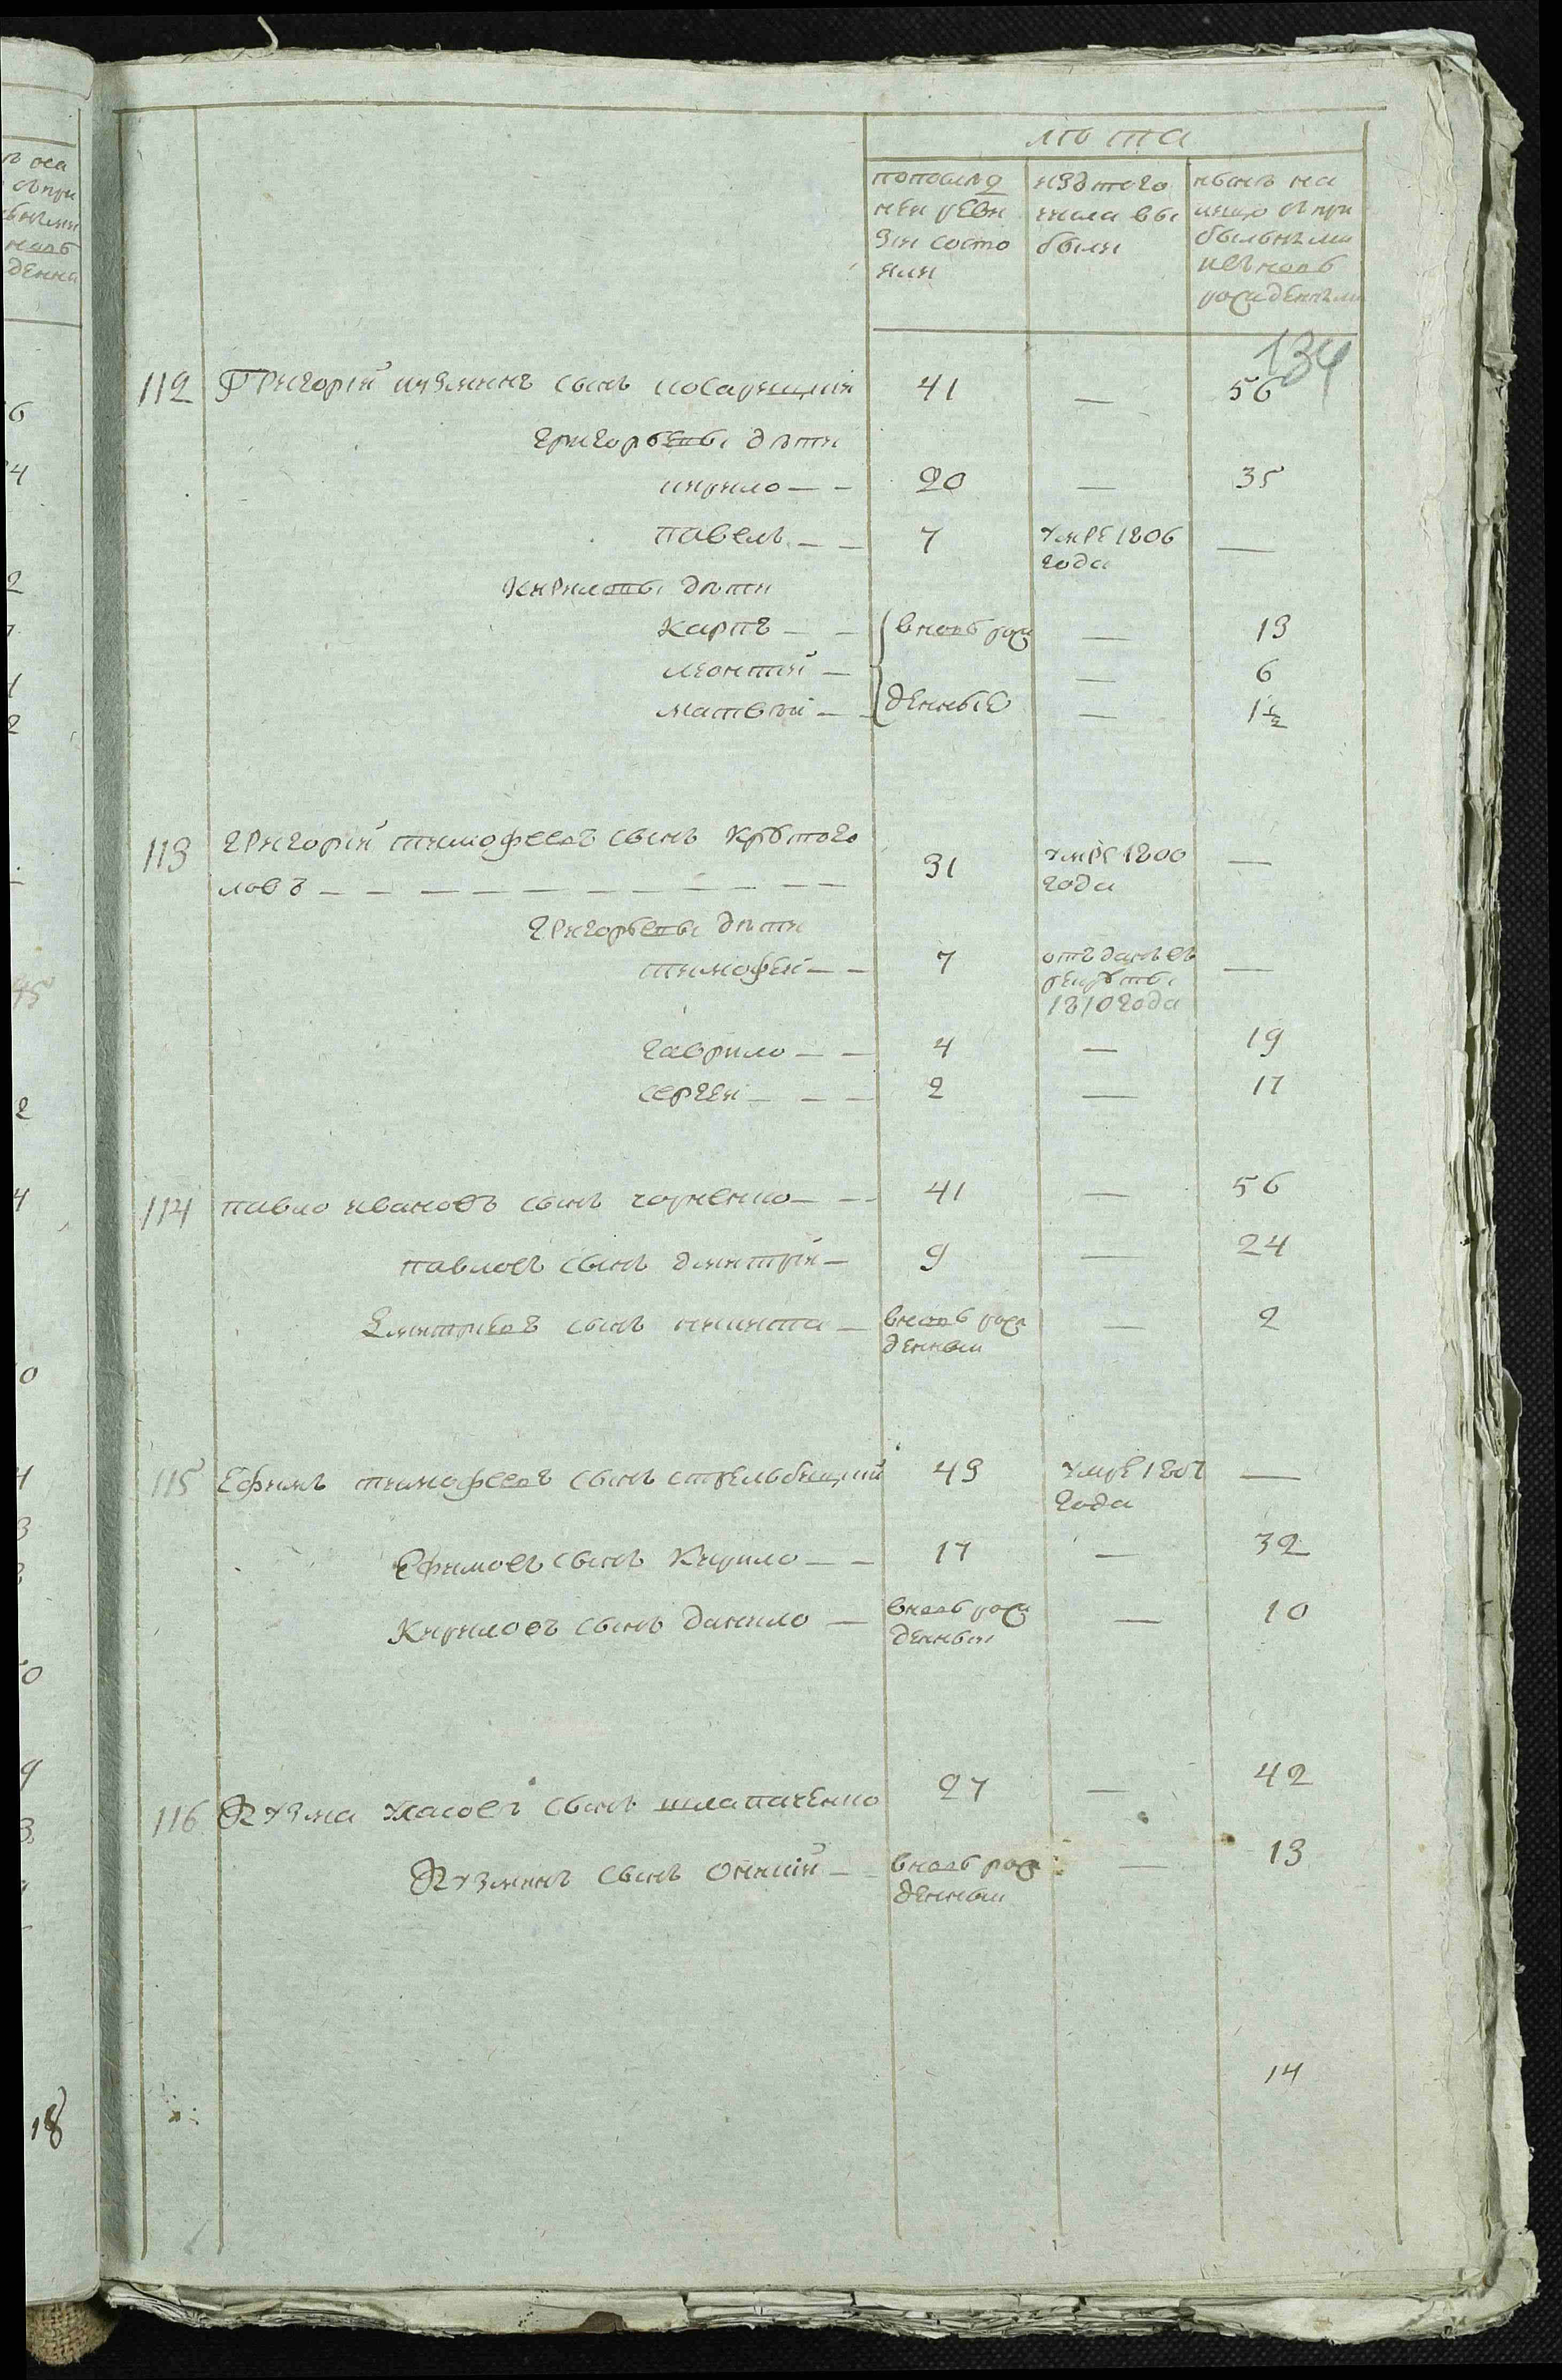 лѣта
попослѣд
ней реви
зіи состо
яли
изъ того
числа вы
были
нынѣ на
лицо съ при
былыми
и вновь
рожденными
134
112 Григорій кузминъ сынъ косарицкій 41 — 56
григорьевы дѣти
кирило — — 20 — 35
павелъ — — 7 умре 1806 —
года
Кириловы дѣти
карпъ — — вновь рож — 13
леонтій — — 6
матвѣй — — денные — 1½
113 григорій тимофеевъ сынъ крутого 31 умре 1800 —
ловъ — — — — — — — — — — года
григорьевы дѣти
тимофей — — 7 отъданъ въ —
рекруты
1810 года
гаврило — — 4 — 19
сергей — — — 2 — 17
114 павло ивановъ сынъ чорненко — — 41 — 56
павловъ сынъ дмитрій — 9 — 24
Дмитріевъ сынъ никита — вновь рож — 2
денный
115 Ефимъ тимофеевъ сынъ стрельбицкий 43 умре 1807 —
года
Ефимовъ сынъ Кирило — — 17 — 32
Кириловъ сынъ данило — вновь рож — 10
денный
116 Кузма уласовъ сынъ шлапаченко 27 — 42
Кузминъ сынъ Оникій — вновь рож — 13
денный
14
18